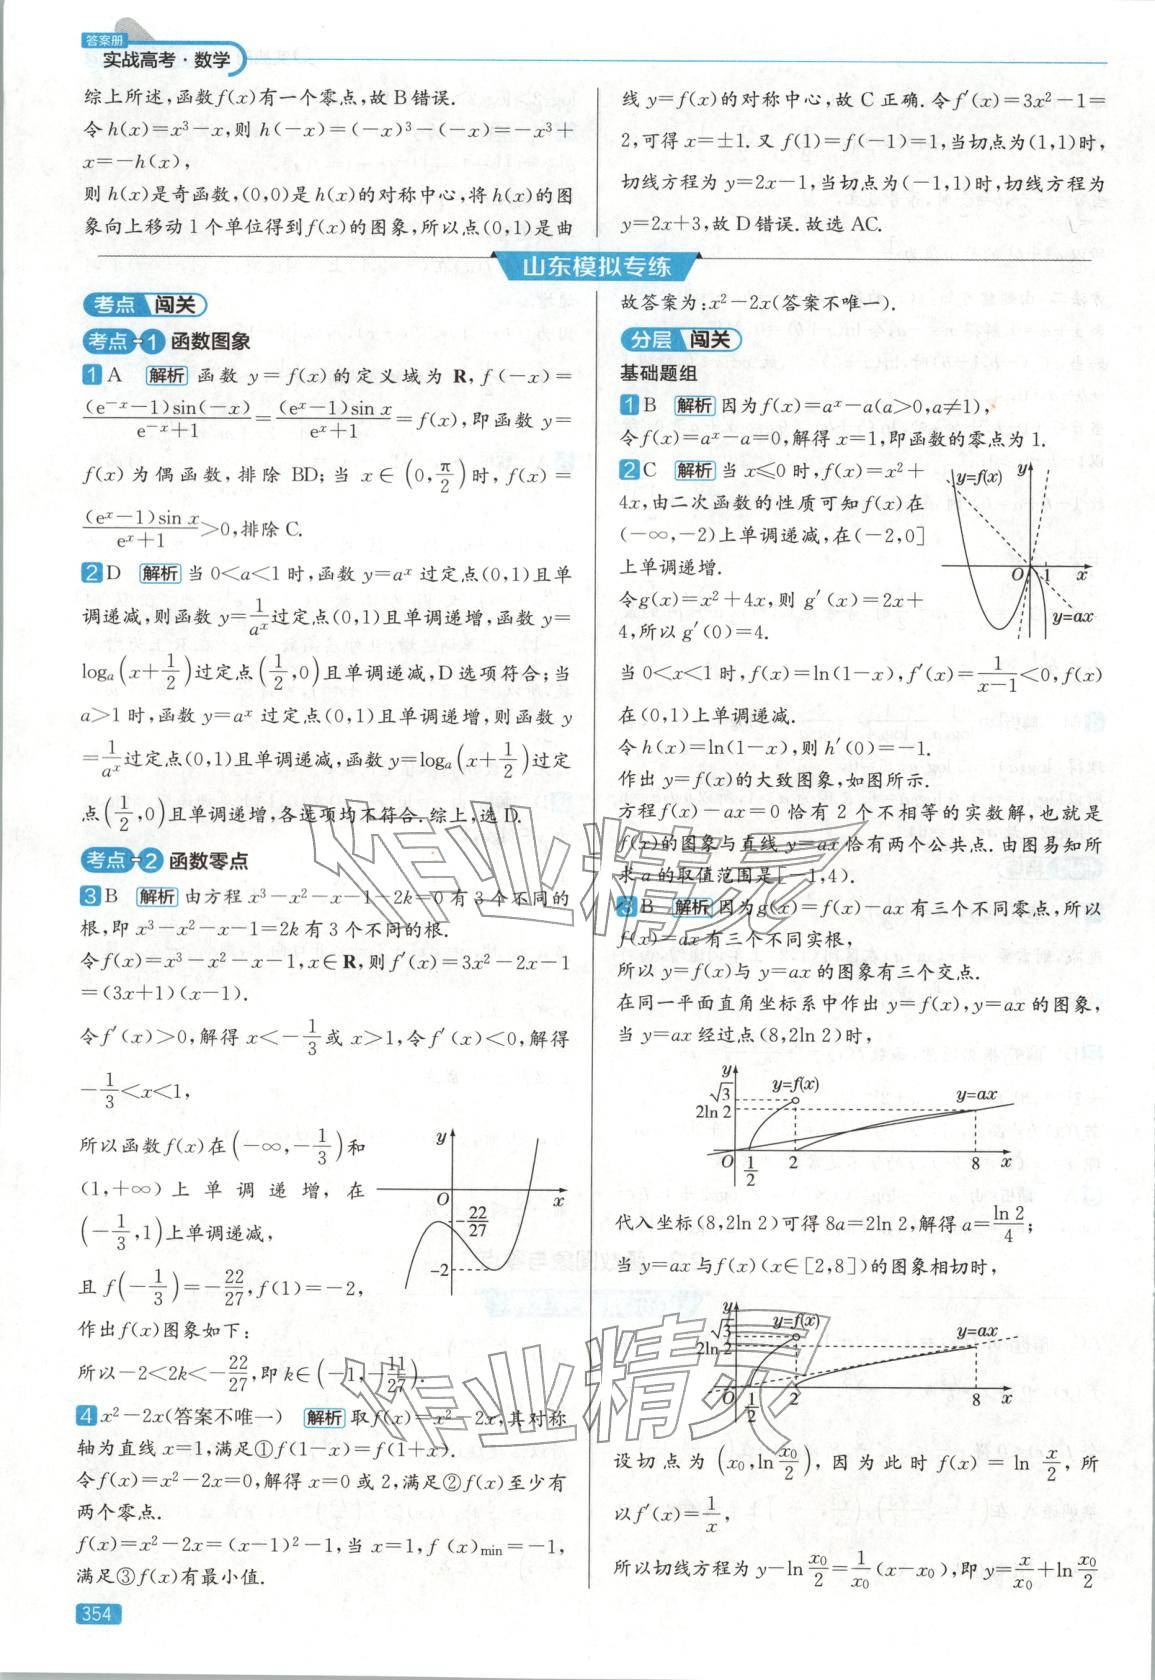 答案册
实战高考·数学
综上所述,函数f(x)有一个零点,故B错误.
令h(x)=x³-x,则 h(-x)=(-x)³-(-x)=-x³+
x=-h(x),
则h(x)是奇函数,(0,0)是h(x)的对称中心,将h(x)的图
象向上移动1个单位得到f(x)的图象,所以点(0,1)是曲
线 y=f(x)的对称中心,故 C 正确.令f′(x)=3x²-1=
2,可得 x=±1.又 f(1)=f(-1)=1,当切点为(1,1)时,
切线方程为 y=2x-1,当切点为(-1,1)时,切线方程为
y=2x+3,故 D 错误.故选 AC.
山东模拟专练
考点 闯关
考点-1 函数图象
1 A 解析 函数 y=f(x)的定义域为 R, f(-x)=
(e⁻ˣ-1)sin(-x)/(e⁻ˣ+1)=(eˣ-1)sin x/(eˣ+1)=f(x),即函数 y=
f(x)为偶函数,排除 BD;当 x∈(0,π/2)时,f(x)=
(eˣ-1)sin x/(eˣ+1)>0,排除C.
2 D 解析 当 0<a<1 时,函数 y=aˣ 过定点(0,1)且单
调递减,则函数 y=1/aˣ过定点(0,1)且单调递增,函数 y=
logₐ(x+1/2)过定点(1/2,0)且单调递减,D选项符合;当
a>1 时,函数 y=aˣ 过定点(0,1)且单调递增,则函数 y
=1/aˣ过定点(0,1)且单调递减,函数 y=logₐ(x+1/2)过定
点(1/2,0)且单调递增,各选项均不符合.综上,选 D.
考点-2 函数零点
3 B 解析 由方程 x³-x²-x-1-2k=0 有 3 个不同的
根,即 x³-x²-x-1=2k 有 3 个不同的根.
令f(x)=x³-x²-x-1,x∈R,则f′(x)=3x²-2x-1
=(3x+1)(x-1).
令f′(x)>0,解得 x<-1/3或 x>1,令f′(x)<0,解得
-1/3<x<1,
所以函数f(x)在(-∞,-1/3)和
(1,+∞)上单调递增,在
(-1/3,1)上单调递减,
且 f(-1/3)=-22/27,f(1)=-2,
作出f(x)图象如下:
y
O
x
-22/27
-2
所以-2<2k<-22/27,即 k∈(-1,-11/27).
4 x²-2x(答案不唯一) 解析 取f(x)=x²-2x,其对称
轴为直线 x=1,满足①f(1-x)=f(1+x).
令f(x)=x²-2x=0,解得 x=0 或 2,满足②f(x)至少有
两个零点.
f(x)=x²-2x=(x-1)²-1,当 x=1,f(x)min=-1,
满足③f(x)有最小值.
354
故答案为:x²-2x(答案不唯一).
分层 闯关
基础题组
1 B 解析 因为f(x)=aˣ-a(a>0,a≠1),
令f(x)=aˣ-a=0,解得 x=1,即函数的零点为 1.
2 C 解析 当 x≤0 时,f(x)=x²+
4x,由二次函数的性质可知f(x)在
(-∞,-2)上单调递减,在(-2,0]
上单调递增.
令g(x)=x²+4x,则 g′(x)=2x+
4,所以 g′(0)=4.
y=f(x)
y
O
1
x
y=ax
当 0<x<1 时,f(x)=ln(1-x),f′(x)=1/(x-1)<0,f(x)
在(0,1)上单调递减.
令 h(x)=ln(1-x),则 h′(0)=-1.
作出 y=f(x)的大致图象,如图所示.
方程f(x)-ax=0 恰有 2 个不相等的实数解,也就是
f(x)的图象与直线 y=ax 恰有两个公共点.由图易知所
求a的取值范围是[-1,4).
3 B 解析 因为g(x)=f(x)-ax有三个不同零点,所以
f(x)=ax有三个不同实根,
所以 y=f(x)与 y=ax 的图象有三个交点.
在同一平面直角坐标系中作出 y=f(x),y=ax 的图象,
当 y=ax 经过点(8,2ln 2)时,
y
√3
2ln 2
y=f(x)
y=ax
O
1/2
2
8
x
代入坐标(8,2ln 2)可得 8a=2ln 2,解得 a=ln 2/4;
当 y=ax 与f(x)(x∈[2,8])的图象相切时,
y
√3
2ln 2
y=f(x)
y=ax
O
1/2
2
8
x
设切点为(x₀,ln x₀/2),因为此时f(x)=ln x/2,所
以f′(x)=1/x,
所以切线方程为 y-ln x₀/2=1/x₀(x-x₀),即 y=x/x₀+ln x₀/2
作业精灵
作业精灵